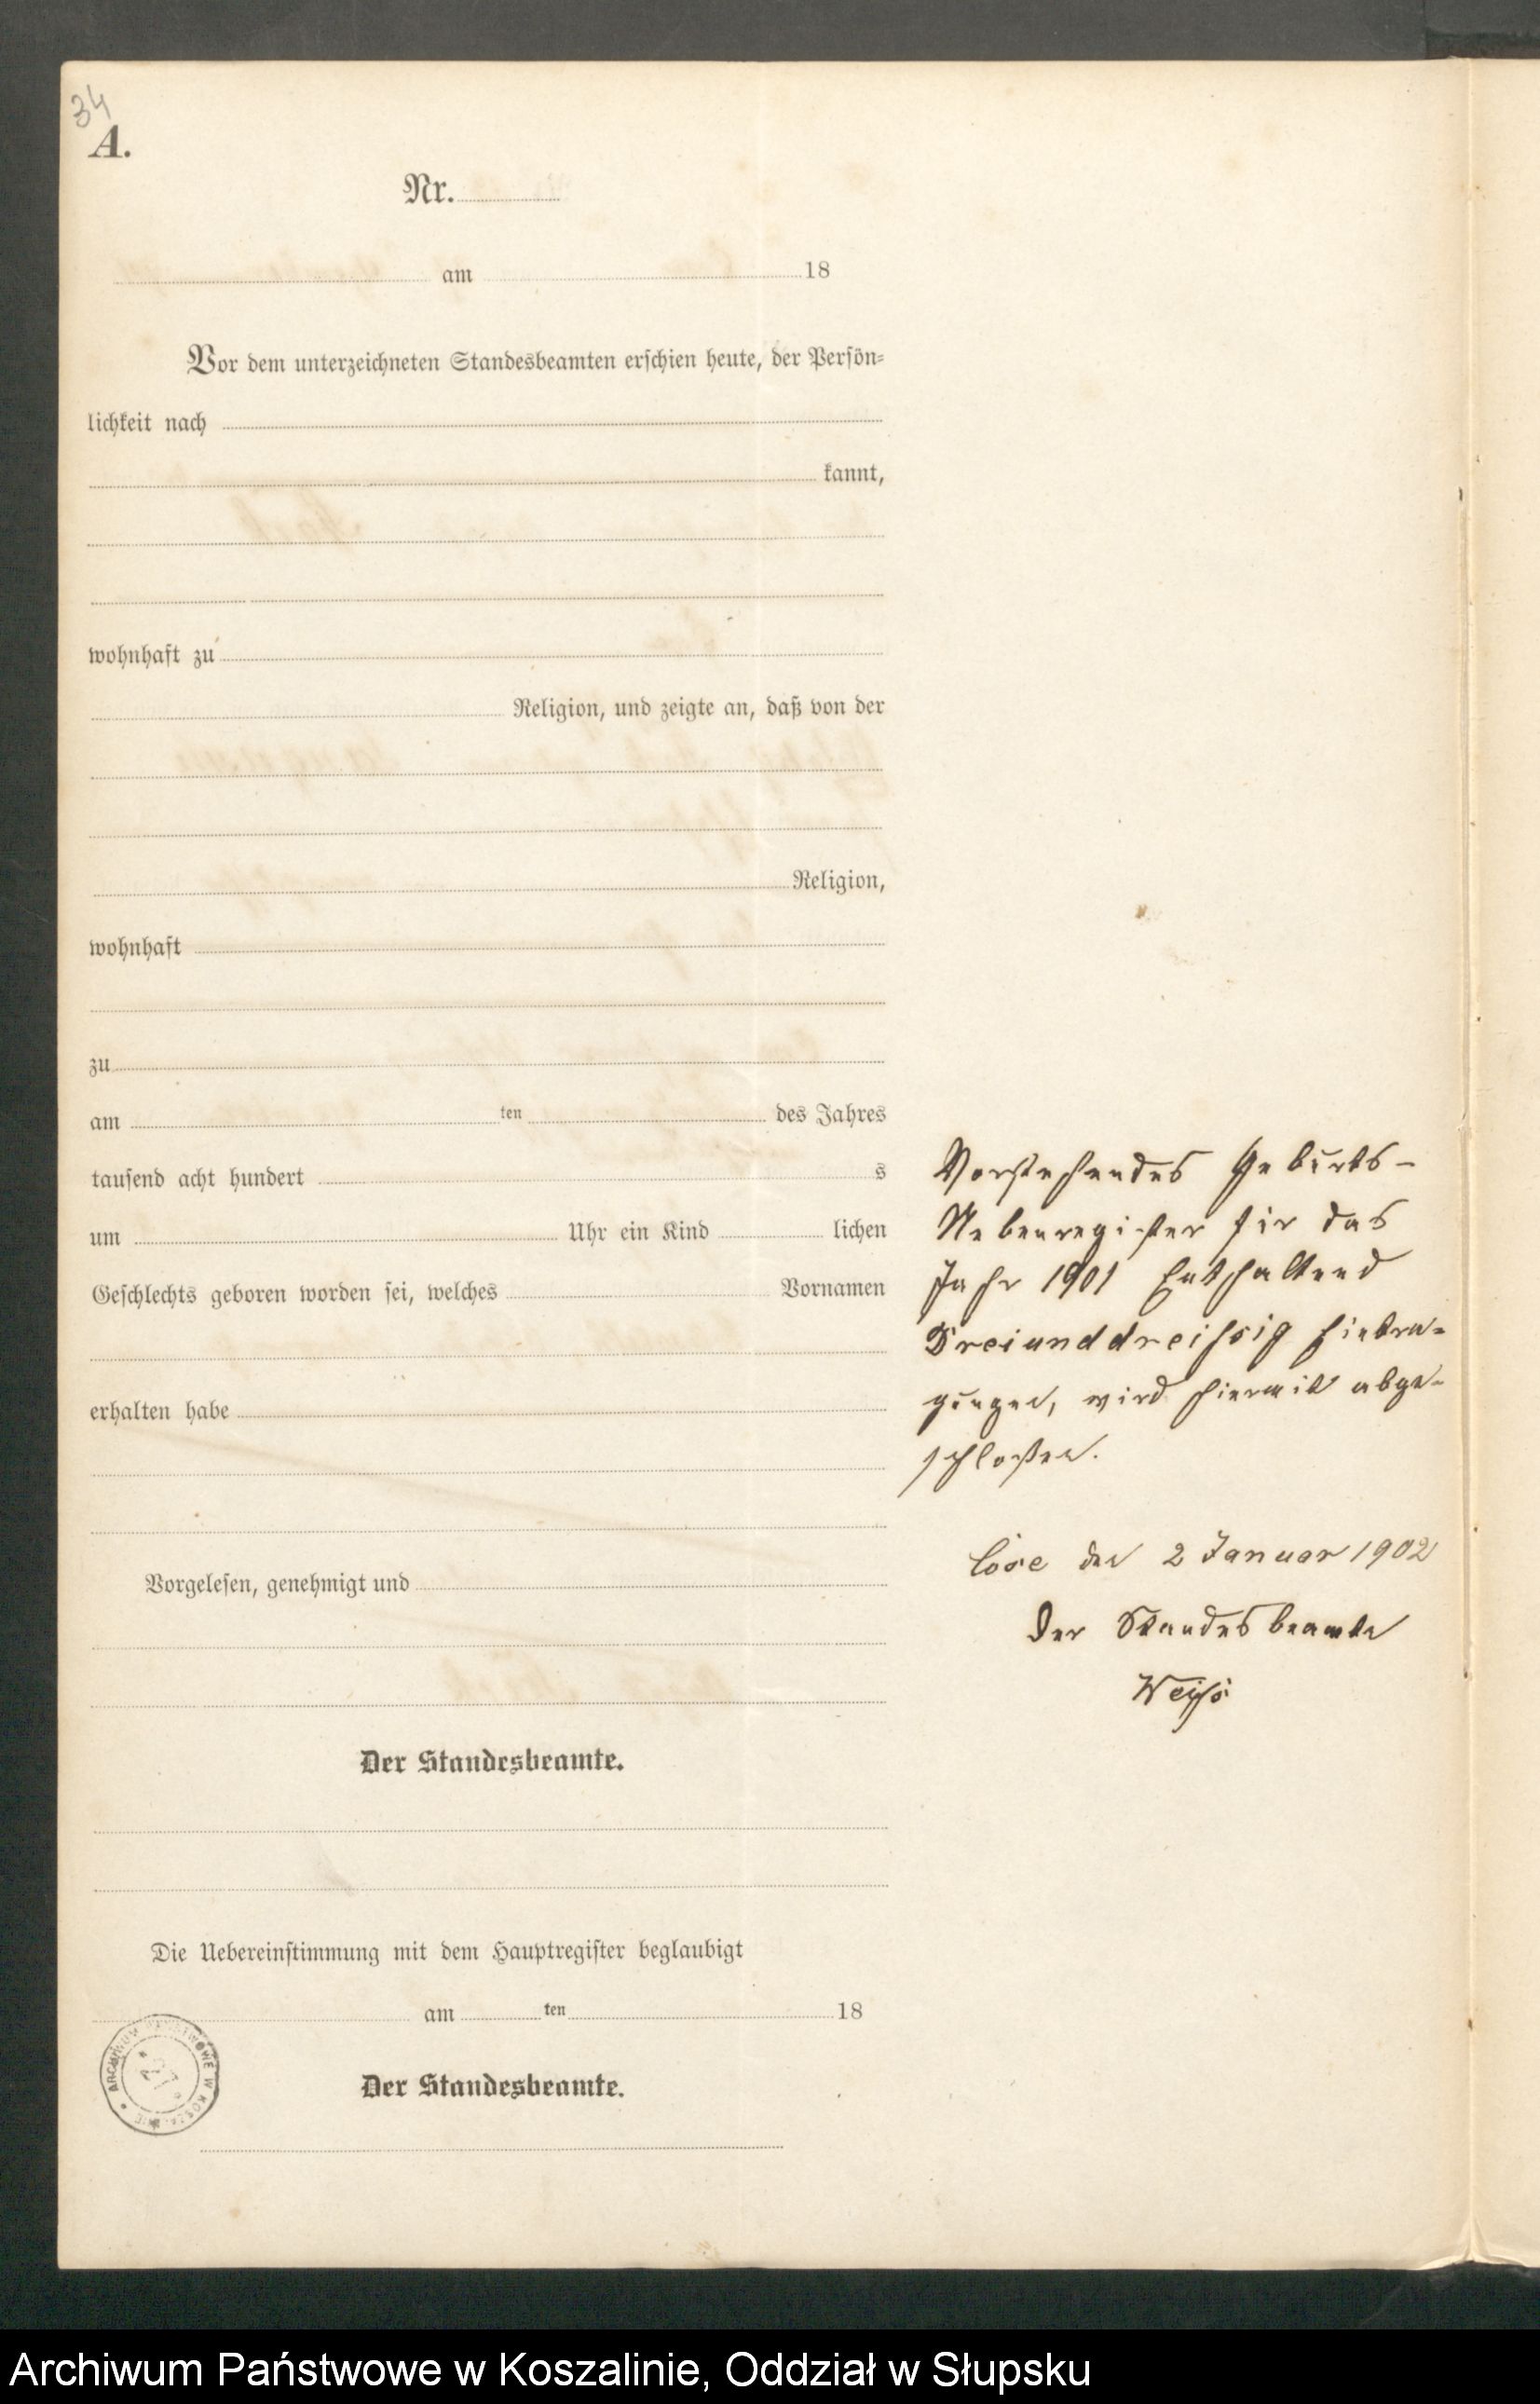 34
A.
Nr.
am 18
Vor dem unterzeichneten Standesbeamten erschien heute, der Persön=
lichkeit nach
kannt,
wohnhaft zu
Religion, und zeigte an, daß von der
Religion,
wohnhaft
zu
am ten des Jahres
tausend acht hundert s
um Uhr ein Kind lichen
Geschlechts geboren worden sei, welches Vornamen
erhalten habe
Vorgelesen, genehmigt und
Der Standesbeamte.
Die Uebereinstimmung mit dem Hauptregister beglaubigt
am ten 18
Der Standesbeamte.
ARCHIWUM PAŃSTWOWE W KOSZALINIE
27
Vorstehendes Geburts-
Nebenregister für das
Jahr 1901 Enthaltend
Dreiunddreißig Eintra=
gungen, wird hiermit abge-
schloßen.
den 2 Januar 1902
Der Standesbeamte
Weiß
Archiwum Państwowe w Koszalinie, Oddział w Słupsku